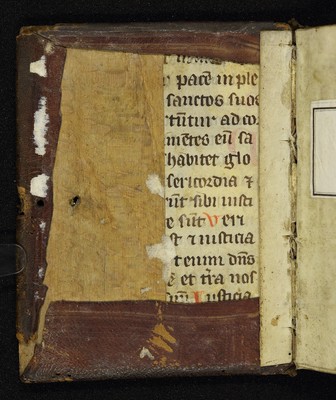 pacē in ple
sanctos suos
rtūtur ad co
mētes eū sa
habitet glo
sericordia ⁊
rūt sibi iusti
e sūt Veri
st ⁊ iusticia
tenim dn̄s
et tr̄a nos
Iusticia